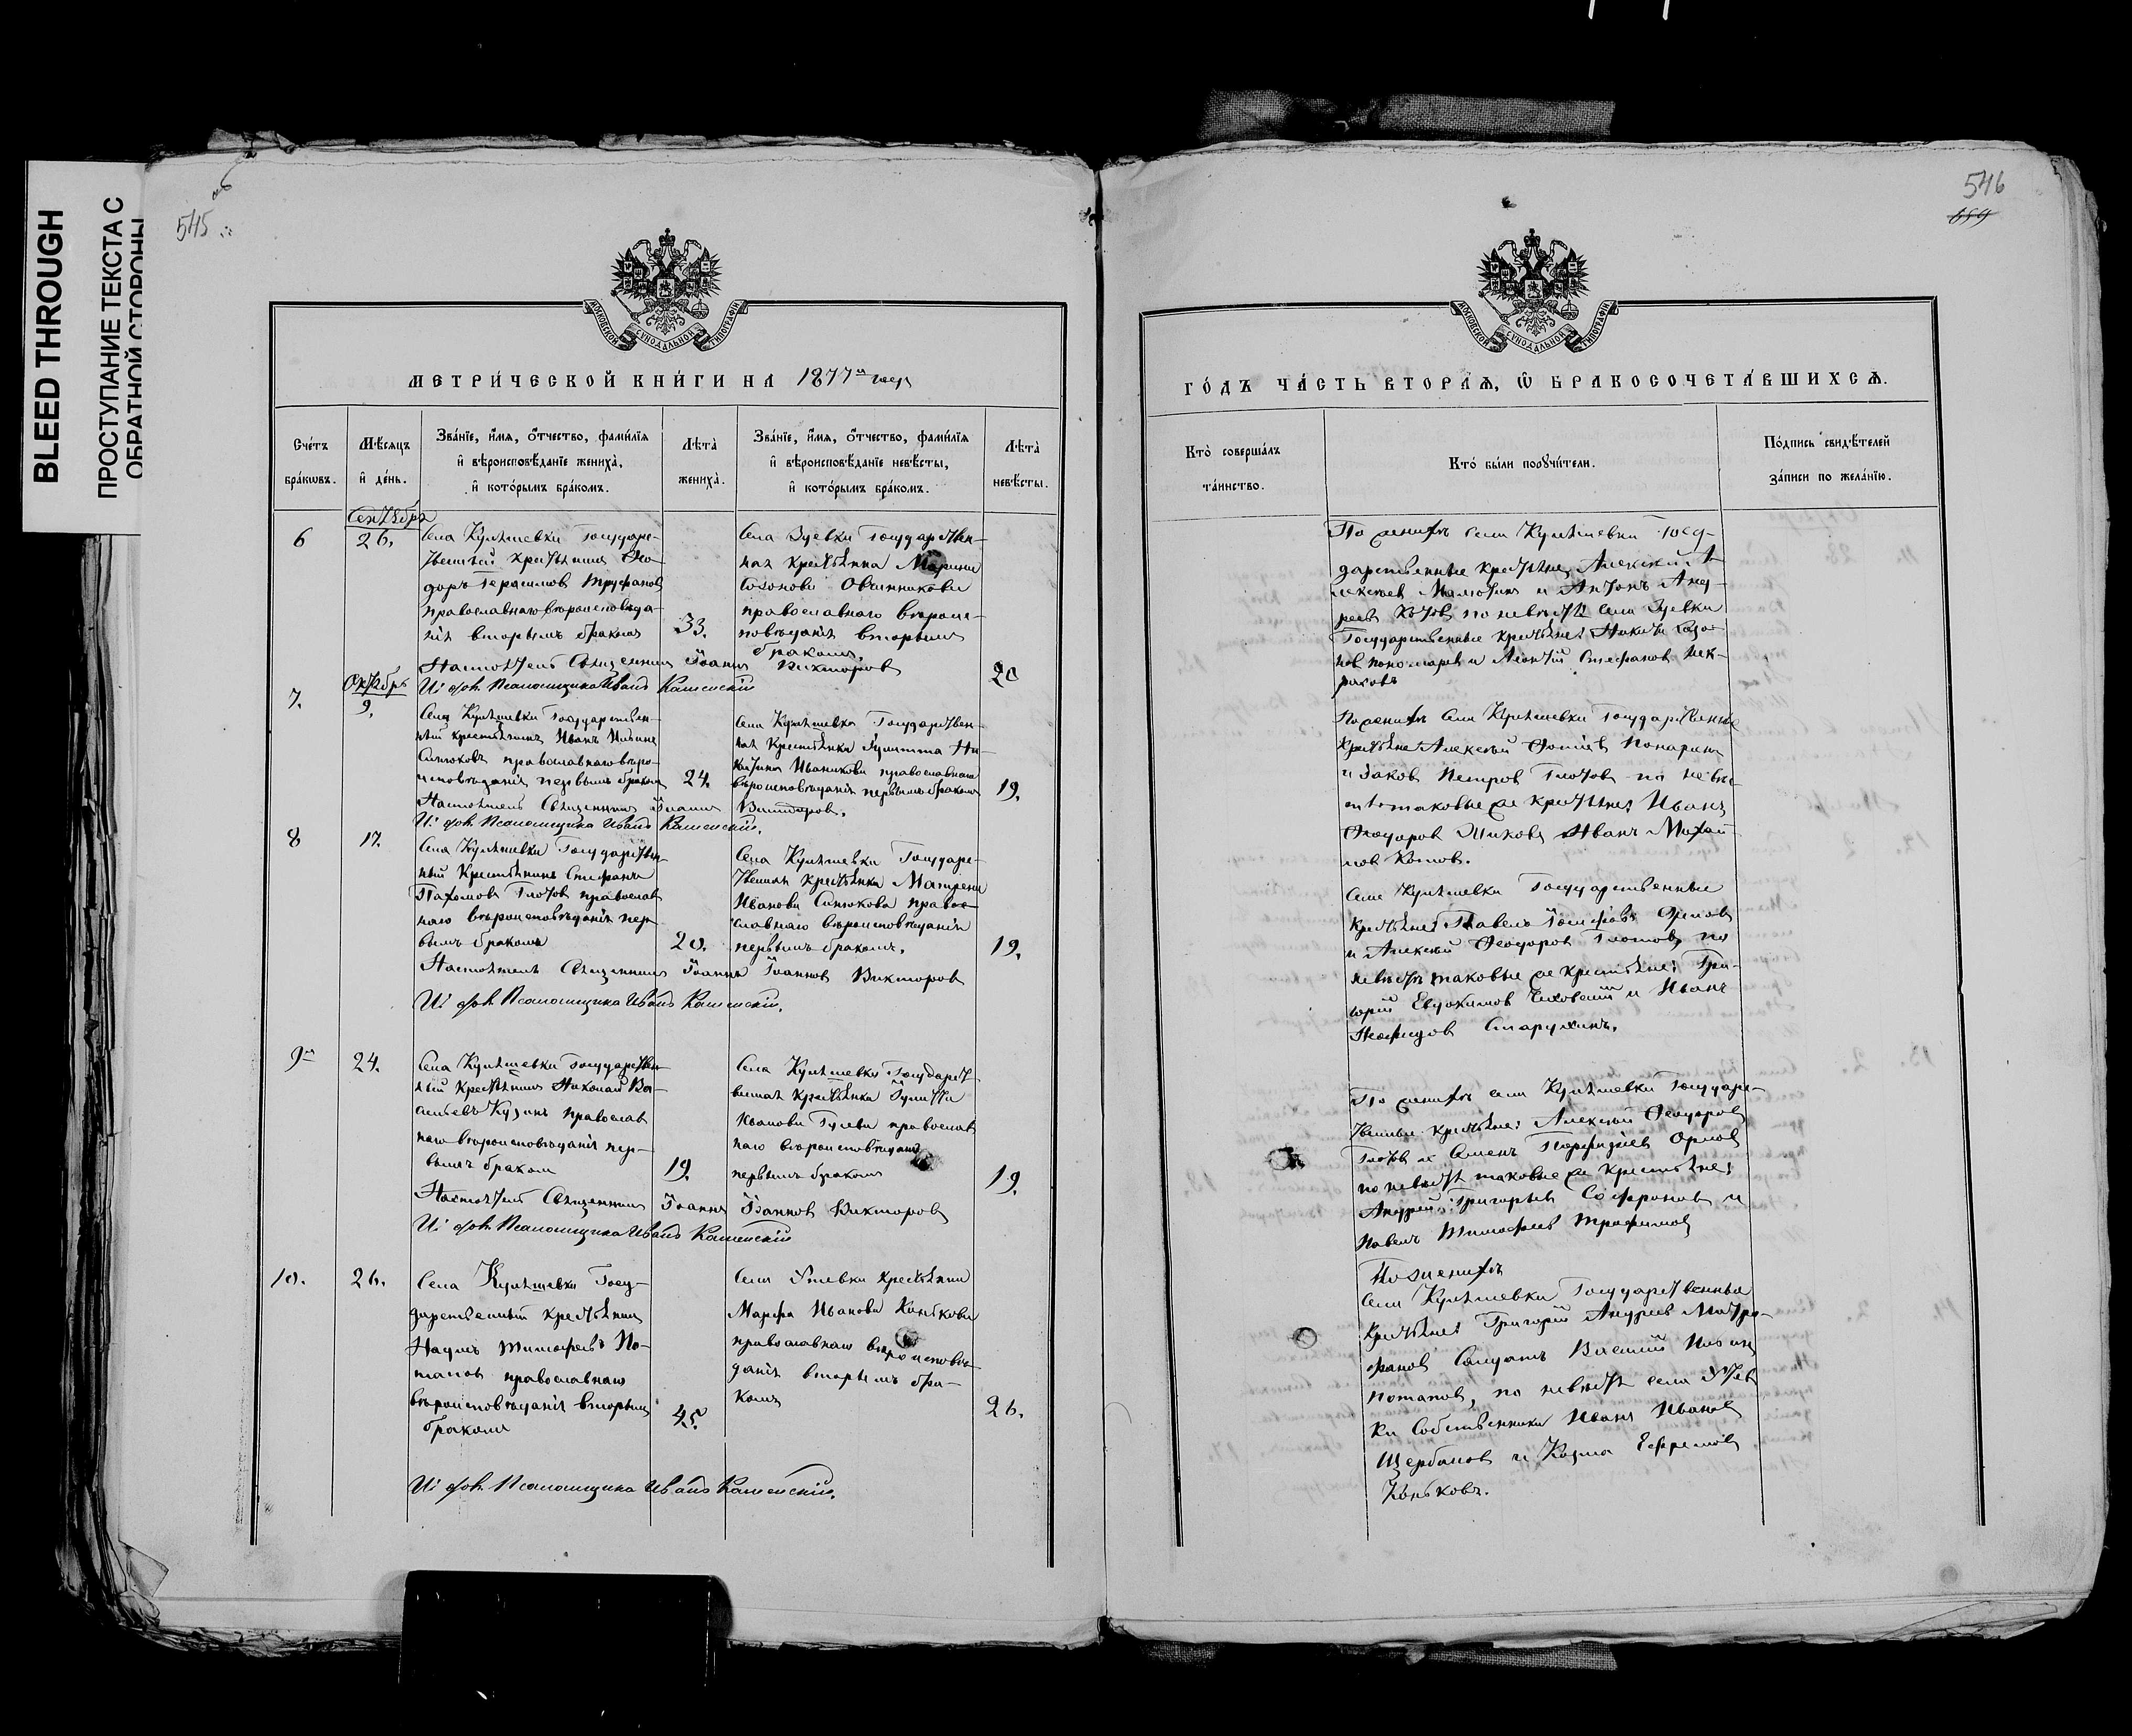 BLEED THROUGH
ПРОСТУПАНИЕ ТЕКСТА С
ОБРАТНОЙ СТОРОНЫ
545
546
659
МОСКОВСКОЙ СѴНОДАЛЬНОЙ ТИПОГРАФІИ
МЕТРИ́ЧЕСКОЙ КНИ́ГИ НА 1877й годъ
Сче́тъ бра́кѡвъ.
Мѣ́сяцъ и҆ де́нь.
Зва́нїе, и҆́мя, ѻ҆́тчество, фами́лїя
и҆ вѣроисповѣ́данїе жениха̀,
и҆ кото́рымъ бра́комъ.
Лѣ́та жениха̀.
Зва́нїе, и҆́мя, ѻ҆́тчество, фами́лїя
и҆ вѣроисповѣ́данїе невѣ́сты,
и҆ кото́рымъ бра́комъ.
Лѣ́та невѣ́сты.
Сентябрь
6
26.
Села Кулѣшевки Государс-
твенный крестьянинъ Ѳео-
доръ Герасимов Труфанов
православнаго вѣроисповѣда-
нія вторымъ браком
33.
Села Зуевки Государствен-
ная крестьянка Марина
Овчинникова
православнаго вѣроис-
повѣданія вторымъ
бракомъ.
20
Настоятель Священник Іоанн Викторов
И: дол. Псаломщика Иванъ Каменскій
Октябрь
7.
9.
Села Кулѣшевки Государствен-
ный крестьянинъ Иванъ Ильинъ
Синюковъ православнаго вѣро-
исповѣданія первымъ браком
24.
Села Кулѣшевки Государствен-
ная Крестьянка Іулитта Ни-
Иванникова православнаго
вѣроисповѣданія первымъ браком
19.
Настоятель Священник Іоанн Викторов.
И: дол. Псаломщика Иванъ Каменскій.
8
17.
Села Кулѣшевки Государствен-
ный Крестьянинъ Стефанъ
Пахомов Глотов православ
наго вѣроисповѣданія пер
вымъ браком
20.
Села Кулѣшевки Государс-
твенная крестьянка Матрена
Иванова Синюкова право-
славнаго вѣроисповѣданія
первымъ браком.
19.
Настоятель Священник Іоаннъ Іоаннов Викторов
И: дол. Псаломщика Иванъ Каменскій.
9й
24.
Села Кулѣшевки Государствен
ный крестьянин Николай Ва-
сильевъ Кузинъ православ
наго вѣроисповѣданія пер-
вымъ браком
19.
Села Кулѣшевки Государст-
венная крестьянка Іулитта
Иванова Гулева православ
наго вѣроисповѣданія
первымъ браком
19.
Настоятель Священник Іоаннъ Іоаннов Викторов
И: дол. Псаломщика Иванъ Каменскій
10.
26.
Села Кулѣшевки Госу-
дарственный крестьянин
Наумъ Тимофеевъ По-
тапов православнаго
вѣроисповѣданія вторым
браком
45.
Села Утевки крестьянка
Марфа Иванова Конькова
православнаго вѣроисповѣ-
данія вторымъ бра-
ком
26.
И: дол. Псаломщика Иванъ Каменскій.
МОСКОВСКОЙ СѴНОДАЛЬНОЙ ТИПОГРАФІИ
ГО́ДЪ ЧА́СТЬ ВТОРА́Я, Ѡ҆ БРАКОСОЧЕТА́ВШИХСЯ.
Кто̀ соверша́лъ та́инство.
Кто̀ бы́ли порꙋчи́тели.
По́дпись свидѣ́телей за́писи по жела́нїю.
По женихѣ села Кулѣшевки Госу-
дарственные крестьяне Алексей А-
лексеев Малютин и Антонъ Анд-
реев по невѣстѣ села Зуевки
Государственные крестьяне: Никита
Пономарев и Леонтій Стефанов Нек-
расовъ
По женихѣ Села Кулѣшевки Государственные
крестьяне Алексѣй Фотіев Понарин
и Яков Петров Глотов по невѣ
стѣ таковые же крестьяне: Иванъ
Ѳеодоров и Иванъ Михай
лов Котов.
Села Кулѣшевки Государственные
крестьяне: Павелъ Орлов
и Алексѣй Ѳеодоров Глотов по
невѣстѣ таковые же крестьяне: Гри-
горій Евдокимов и Иванъ
Старухинъ.
По женихѣ села Кулѣшевки Государс-
твенные крестьяне: Алексѣй Ѳеодоров
Глотов и Семенъ Орлов
по невѣстѣ таковые же крестьяне:
Андрей Григорьев Софронов и
Павелъ Тимофеев Трофимов
По женихѣ
Села Кулѣшевки Государственные
крестьяне: Григорій Андреев Митро-
фанов Солдатъ Василій Ильин
Потапов, по невѣстѣ села Утев
ки Собственники Иванъ Иванов
Щербаков и Козма Ефремов
Коньковъ.